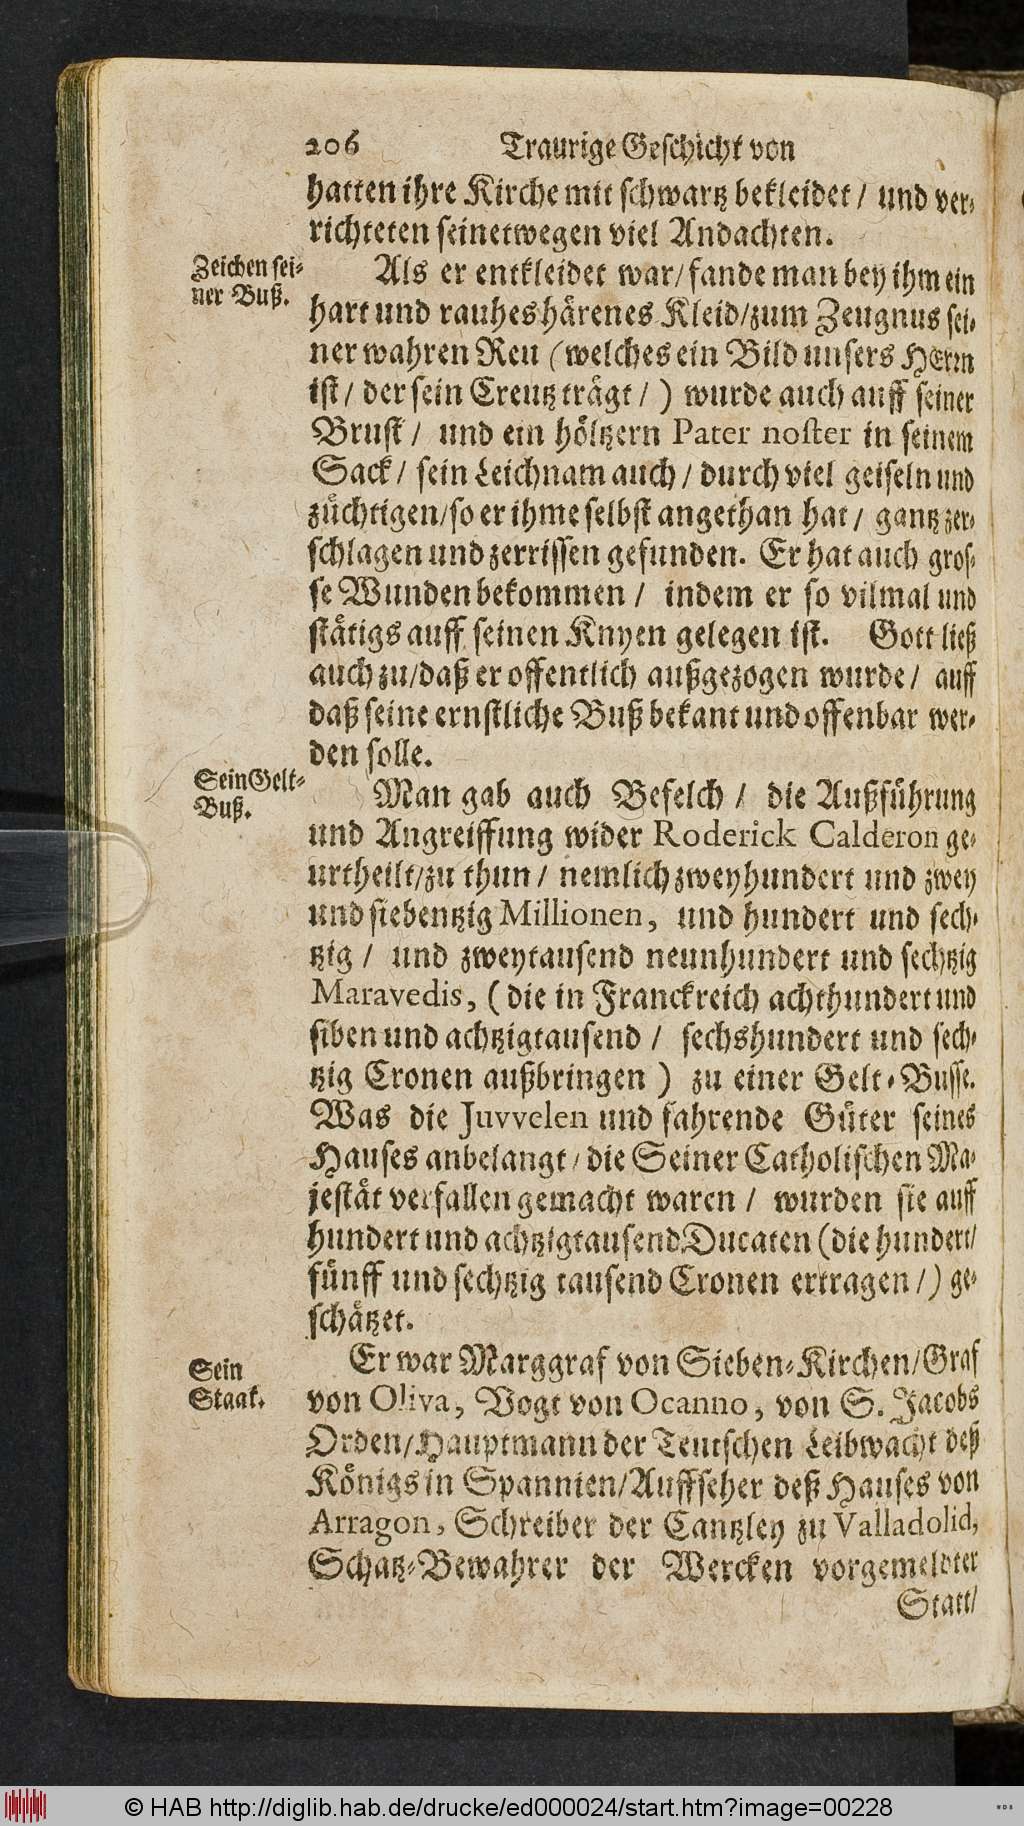 206 Traurige Geschicht von
hatten ihre Kirche mit schwartz bekleidet / und ver-
richteten seinetwegen viel Andachten.
Zeichen sei-
ner Buß.
Als er entkleidet war / fande man bey ihm ein
hart und rauhes härenes Kleid / zum Zeugnus sei-
ner wahren Reu (welches ein Bild unsers HErrn
ist / der sein Creutz trägt /) wurde auch auff seiner
Brust / und ein höltzern Pater noster in seinem
Sack / sein Leichnam auch / durch viel geiseln und
züchtigen / so er ihme selbst angethan hat / gantz zer-
schlagen und zerrissen gefunden. Er hat auch gros-
se Wunden bekommen / indem er so vilmal und
stätigs auff seinen Knyen gelegen ist. Gott ließ
auch zu / daß er offentlich außgezogen wurde / auff
daß seine ernstliche Buß bekant und offenbar wer-
den solle.
Sein Gelt-
Buß.
Man gab auch Befelch / die Außführung
und Angreiffung wider Roderick Calderon ge-
urtheilt / zu thun / nemlich zweyhundert und zwey
und siebentzig Millionen, und hundert und sech-
tzig / und zweytausend neunhundert und sechtzig
Maravedis, (die in Franckreich achthundert und
siben und achtzigtausend / sechshundert und sech-
tzig Cronen außbringen) zu einer Gelt-Busse.
Was die Juvvelen und fahrende Güter seines
Hauses anbelangt / die Seiner Catholischen Ma-
jestät verfallen gemacht waren / wurden sie auff
hundert und achtzigtausend Ducaten (die hundert /
fünff und sechtzig tausend Cronen ertragen /) ge-
schätzet.
Sein
Staat.
Er war Marggraf von Sieben-Kirchen / Graf
von Oliva, Vogt von Ocanno, von S. Jacobs
Orden / Hauptmann der Teutschen Leibwacht deß
Königs in Spannien / Auffseher deß Hauses von
Arragon, Schreiber der Cantzley zu Valladolid,
Schatz-Bewahrer der Wercken vorgemeldter
Statt /
© HAB http://diglib.hab.de/drucke/ed000024/start.htm?image=00228